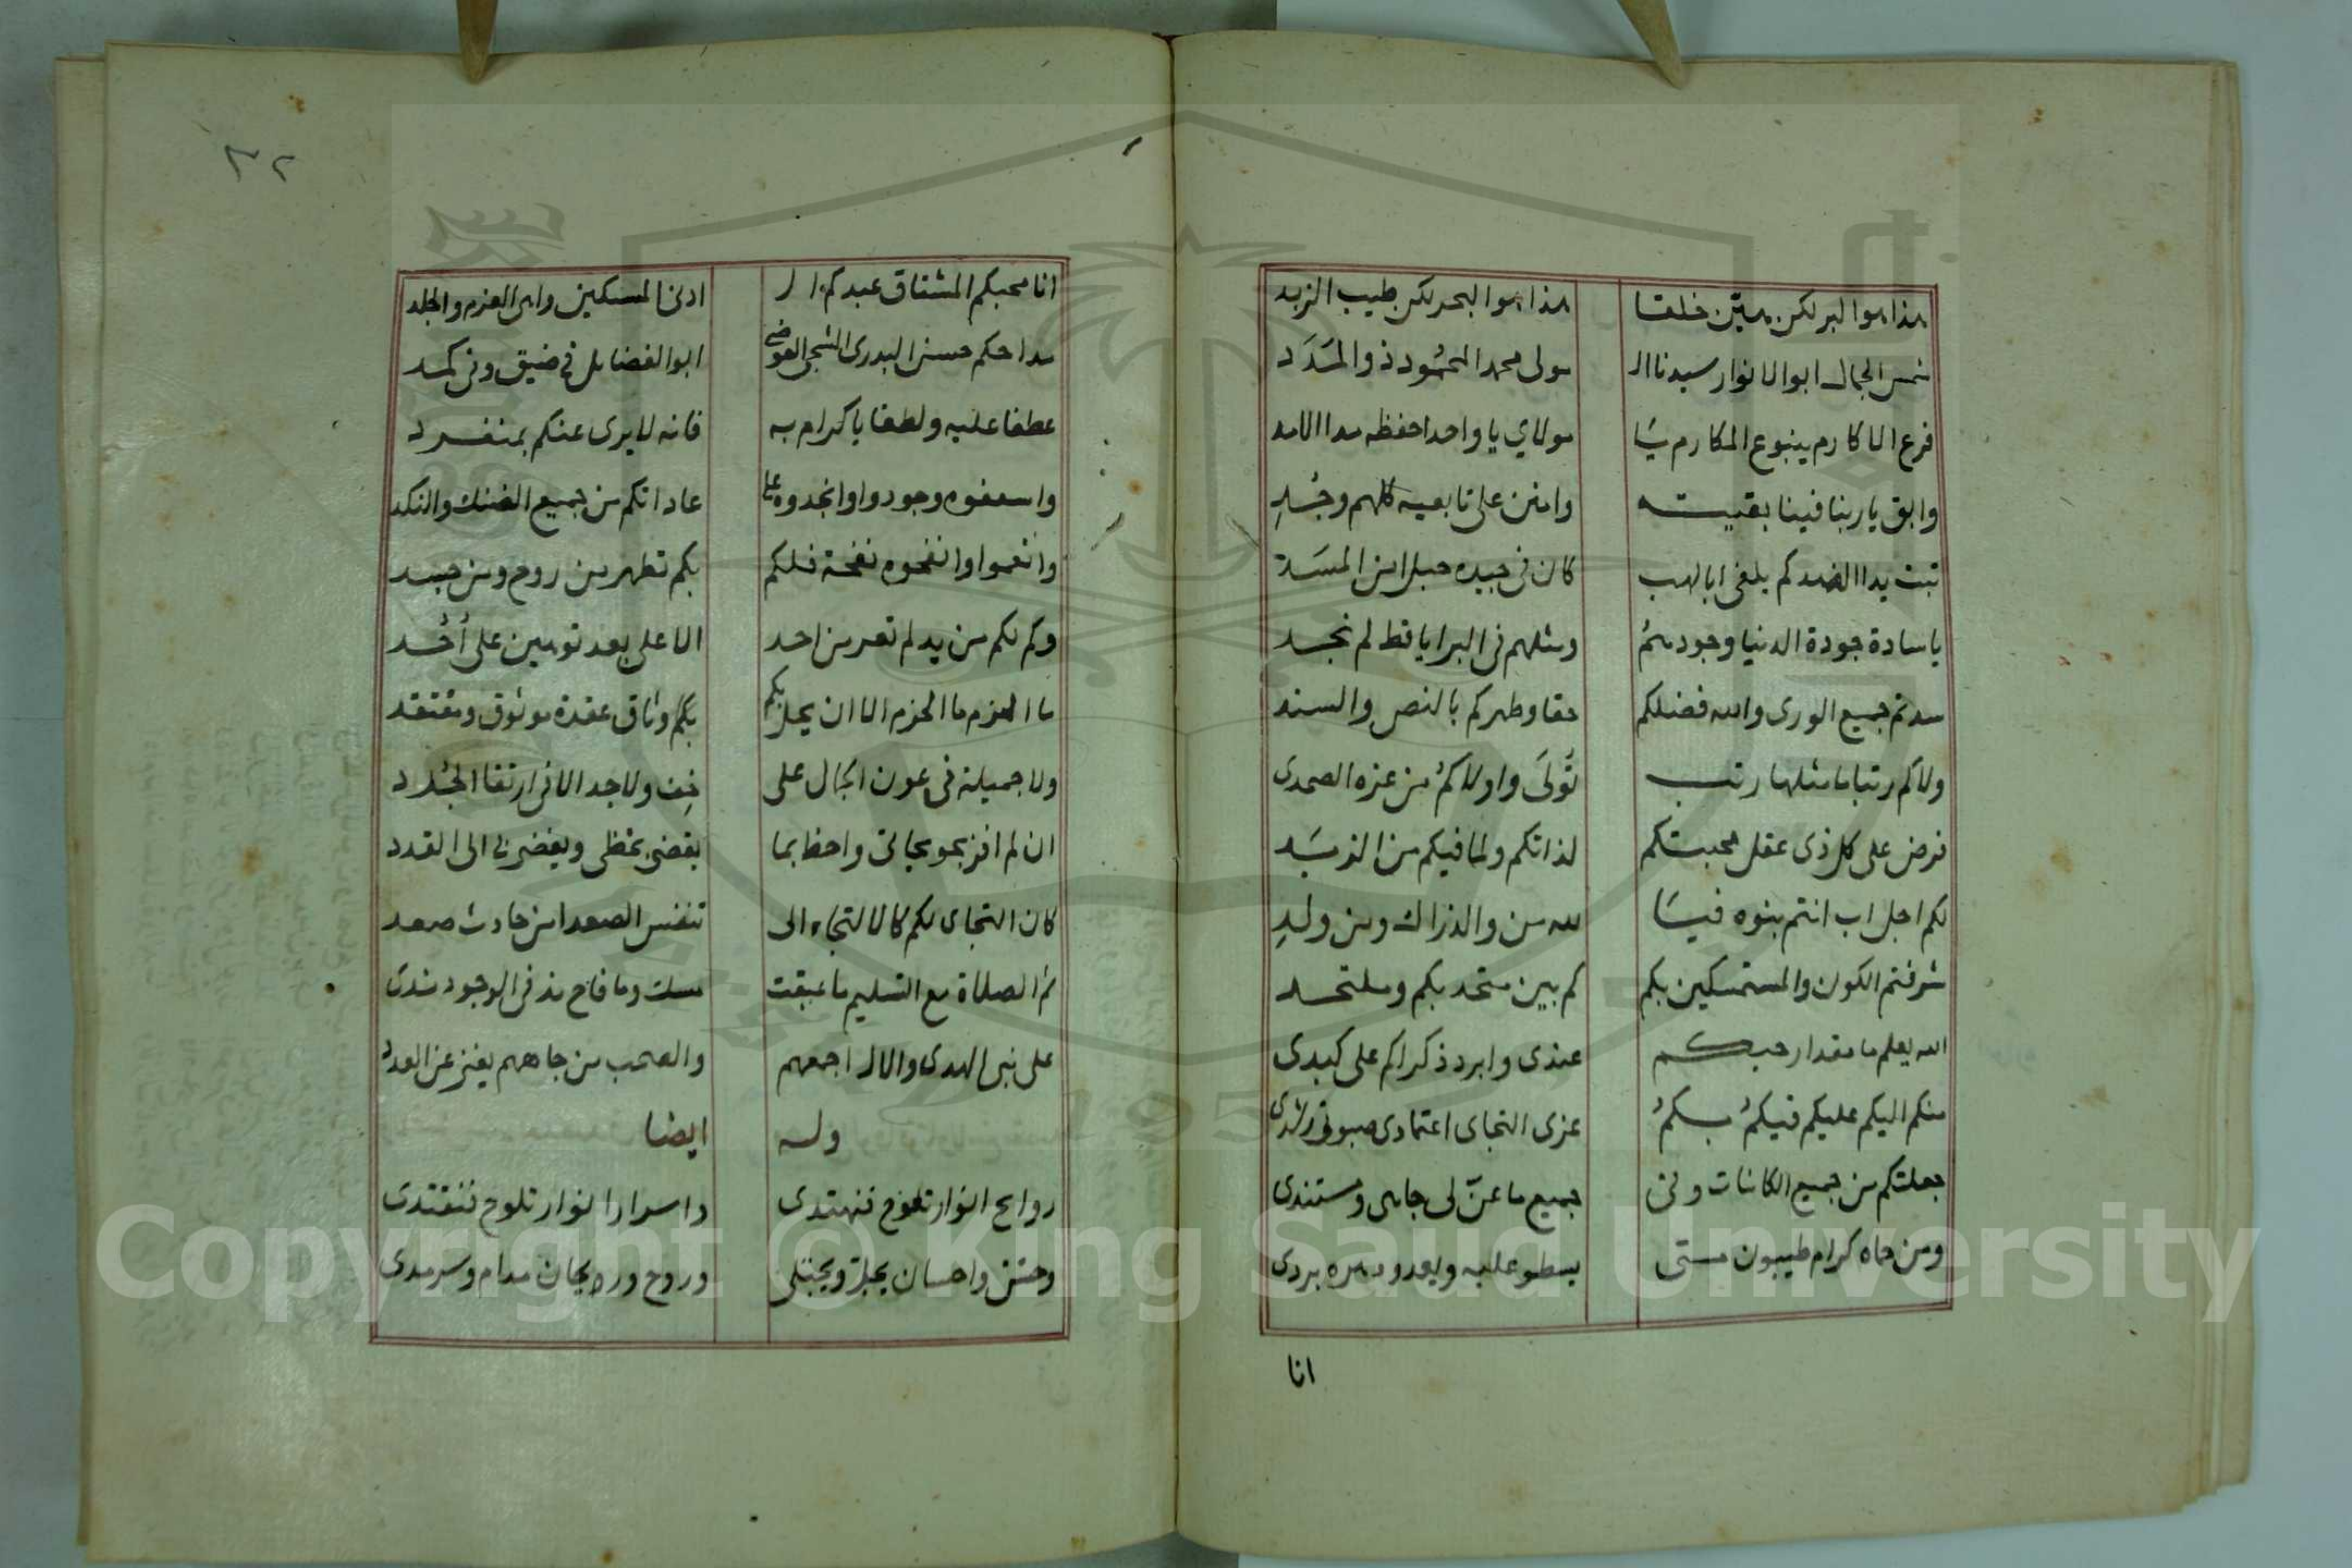 هذا هو البر لكن هين خلقا هذا هو البحر لكن طيب الزبد
شمس الجمال ابو الانوار سيدنا ال مولى محمد المحمود ذو المدد
فرع الاكارم ينبوع المكارم يا مولاي يا واحدا احفظه مدا الامد
وابق يا ربنا فينا بقيته وامنن على تابعيه كلهم وجد
تبت يدا الضد كم يلغى ابا لهب كان فى جيده حبلا من المسد
يا سادة جودة الدنيا وجودهم ومثلهم فى البرايا قط لم نجد
سدتم جميع الورى والله فضلكم حقا وطهركم بالنص والسند
ولاكم رتبا ما مثلها رتب تولى واولاكم من عزه الصمدى
فرض على كل ذى عقل محبتكم لذاتكم ولما فيكم من
لكم اجل اب انتم بنوه فيا لله من والد زاك ومن ولد
شرفتم الكون والمستمسكين بكم كم بين متحد بكم وملتحد
الله يعلم ما مقدار حبكم عندى وابرد ذكراكم على كبدى
منكم اليكم عليكم فيكم بكم عزى التجاى اعتمادى رشدى
جعلتكم من جميع الكائنات وفى جميع ما عن لى جاهى ومستندى
ومن حماه كرام طيبون متى يسطو عليه ويعدو دهره بردى
انا
٣٢
انا محبكم المشتاق عبدكم ال ادنى المسكين واهى العزم والجلد
مداحكم حسن البدرى الشجى العوضى ابو الفضايل فى ضيق وفى كمد
عطفا عليه ولطفا يا كرام به فانه لا يرى عنكم بمنفرد
واسعفوه وجودوا وانجدوه على عاداتكم من جميع الضنك والنكد
وانعموا وانفحوه نفحة فلكم بكم تطهر من روح ومن جسد
وكم لكم من يد لم تعر من احد الا على بعد تومين على احد
ما العزم ما الحزم الا ان يحل بكم بكم وثاق عقدة موثوق ومفتقد
ولا جميلة فى عون الجمال على ولا جد الا فى ارتقا
ان لم افز بمحوجاتى واحظ بما يقضى بحظى ويفضى بى الى القدد
كان التجاى لكم كالالتجاء الى تنفس الصعدا من حادث صعد
ثم الصلاة مع التسليم ما عبقت مسك وما فاح ند فى الوجود ندى
على نبى الهدى والال اجمعهم والصحب من جاههم يغنى عن العدد
وله ايضا
روايح انوار تفوح فنهتدى واسرار انوار تلوح فنقتدى
وحسن واحسان يجل ويجتلى وروح وريحان مدام وسرمدى
Copyright © King Saud University